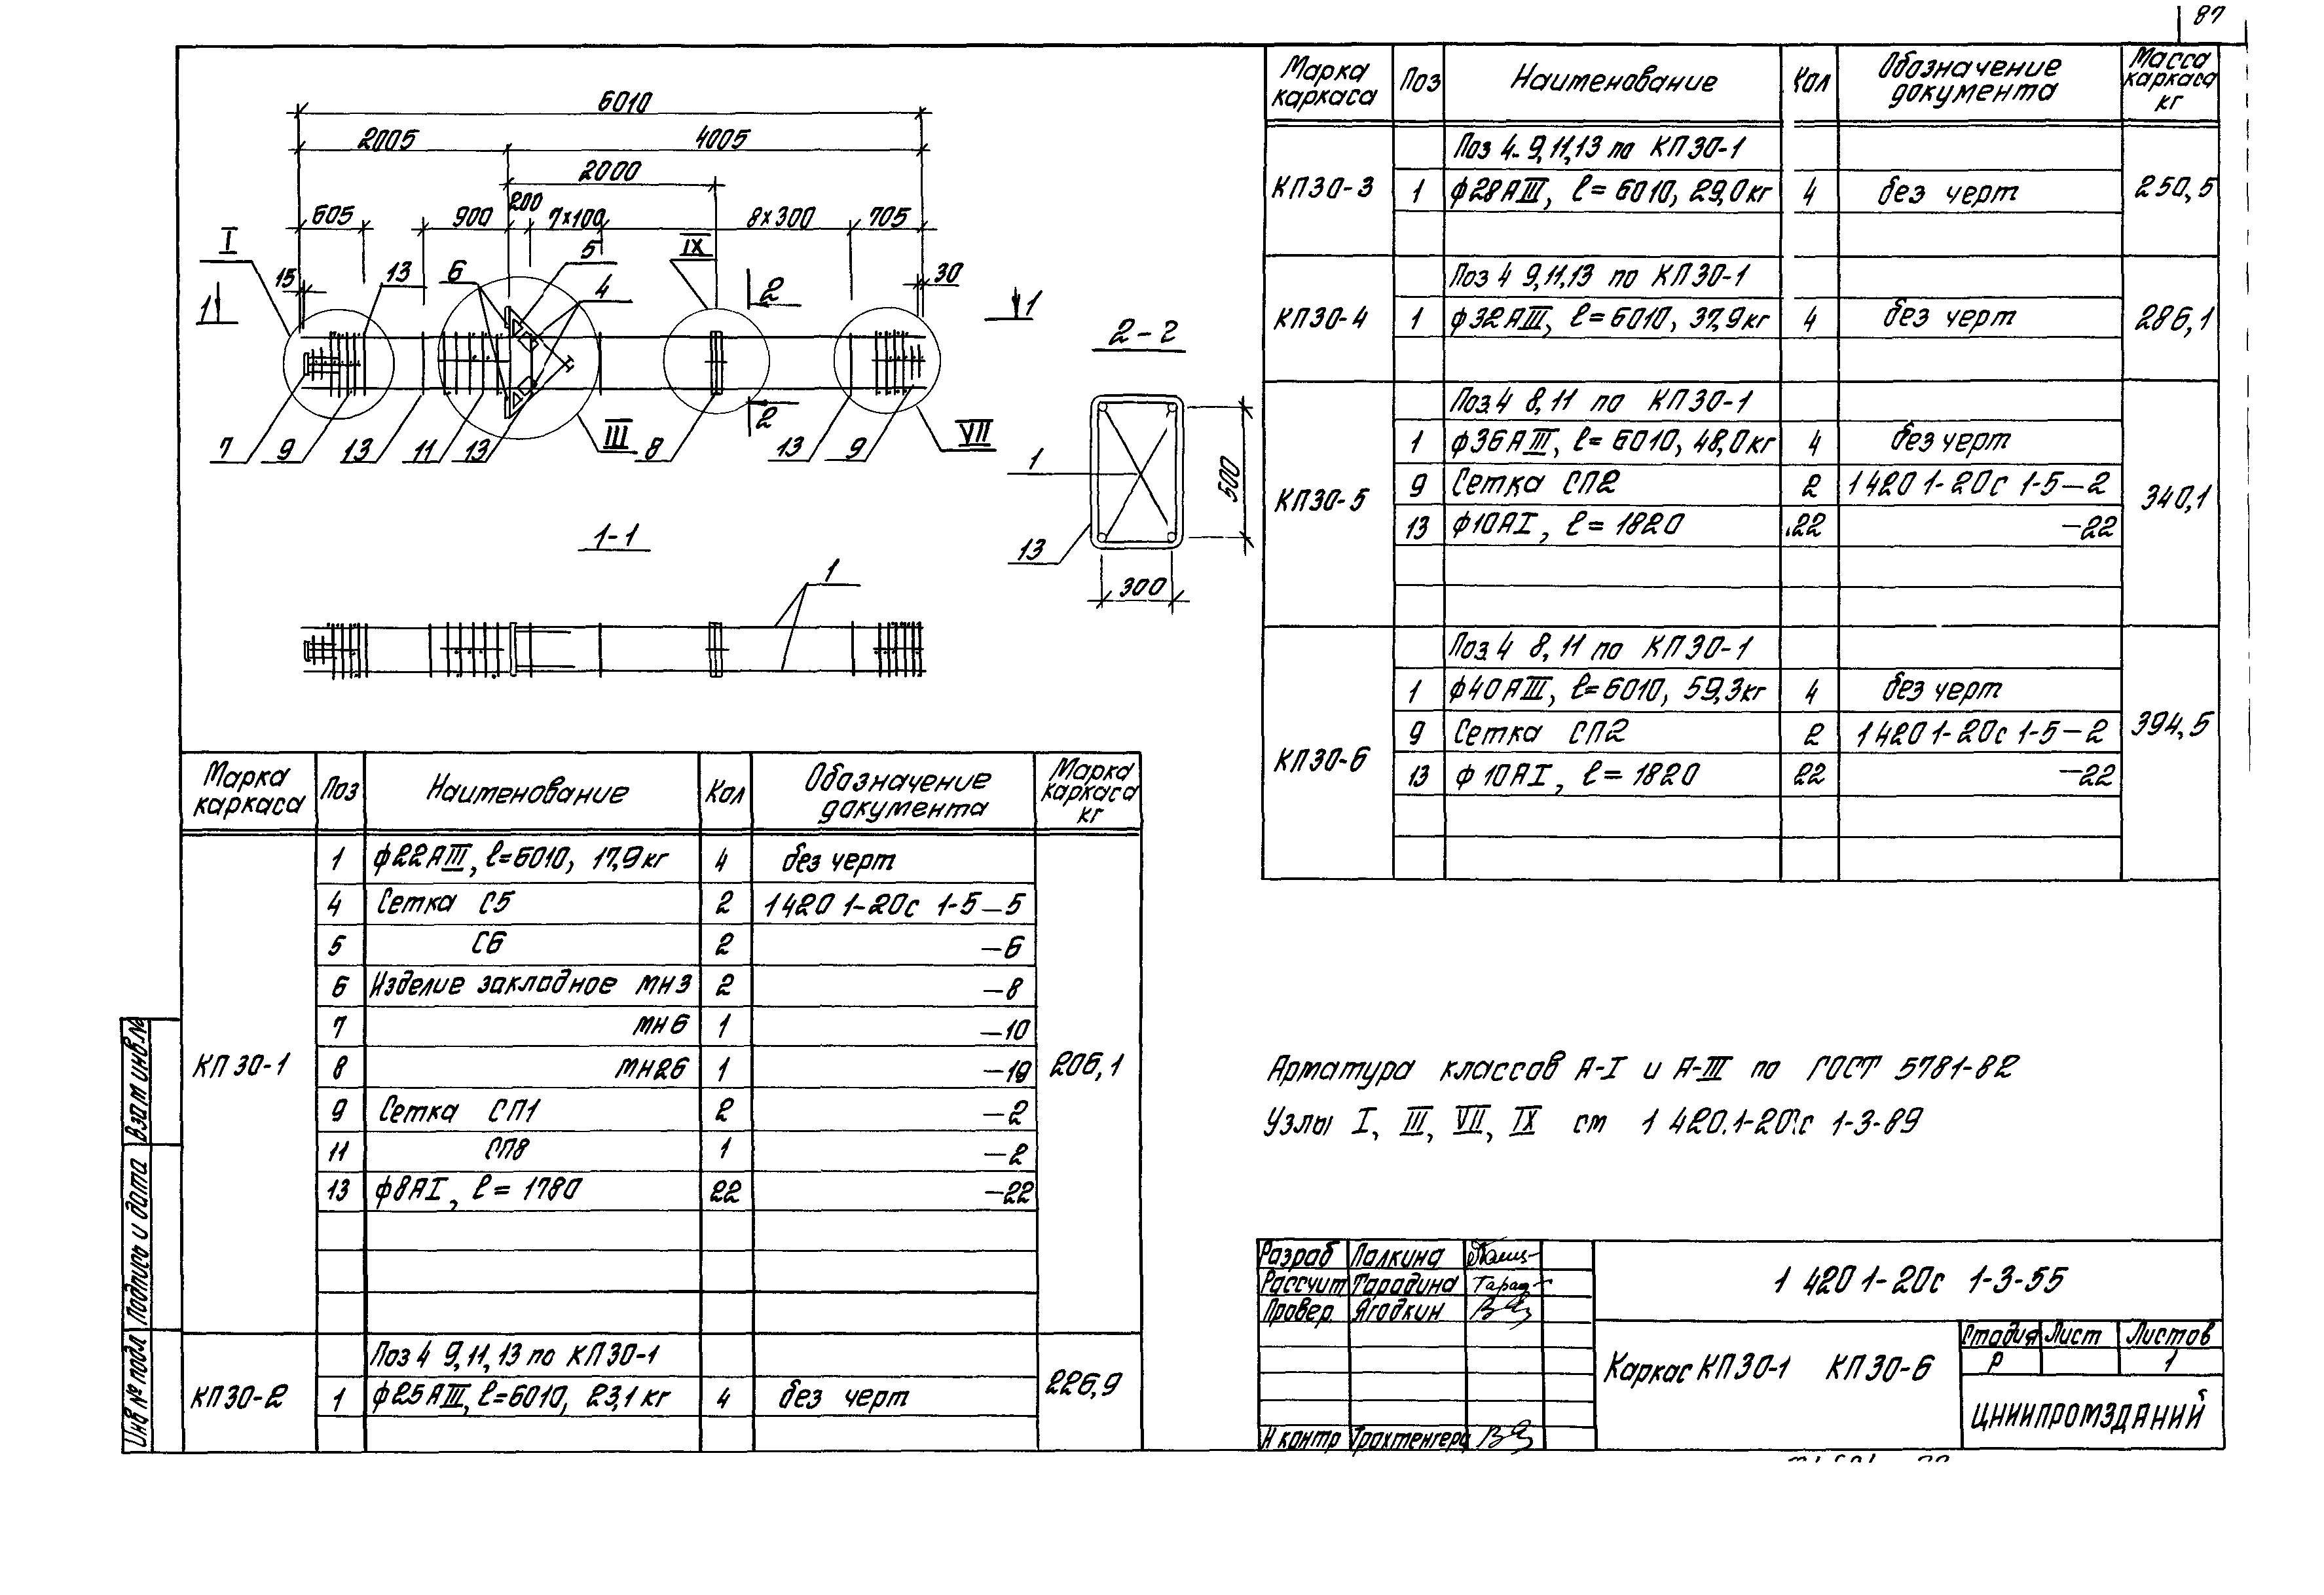 87
6010
2005 4005
2000
605 900 200 7×100 8×300 705
I 5 IX
15 13 6 4 2 30
1 1
2
7 9 13 11 13 III 8 13 9 VII
2-2
1
500
13
300
1-1
1
Марка каркаса Поз Наименование Кол Обозначение документа Марка каркаса кг
КП 30-1 206,1
1 ф22АIII, ℓ=6010, 17,9кг 4 без черт
4 Сетка С5 2 1 420 1-20с 1-5-5
5 С6 2 -6
6 Изделие закладное МН3 2 -8
7 МН6 1 -10
8 МН26 1 -19
9 Сетка СП1 2 -2
11 СП8 1 -2
13 ф8АI, ℓ=1780 22 -22
КП30-2 226,9
Поз 4 9,11,13 по КП30-1
1 ф25АIII, ℓ=6010, 23,1 кг 4 без черт
Марка каркаса Поз Наименование Кол Обозначение документа Масса каркаса кг
КП30-3 250,5
Поз 4-9,11,13 по КП30-1
1 ф28АIII, ℓ=6010, 29,0кг 4 без черт
КП30-4 286,1
Поз 4 9,11,13 по КП30-1
1 ф32АIII, ℓ=6010, 37,9кг 4 без черт
КП30-5 340,1
Поз4 8,11 по КП30-1
1 ф36АIII, ℓ=6010, 48,0кг 4 без черт
9 Сетка СП2 2 1 420 1-20с 1-5-2
13 ф10АI, ℓ=1820 22 -22
КП30-6 394,5
Поз4 8,11 по КП30-1
1 ф40АIII, ℓ=6010, 59,3кг 4 без черт
9 Сетка СП2 2 1 420 1-20с 1-5-2
13 ф10АI, ℓ=1820 22 -22
Арматура классов А-I и А-III по ГОСТ 5781-82
Узлы I, III, VII, IX см 1 420.1-20с 1-3-89
Взам инв.№
Подпись и дата
Инв № подл
Разраб Палкина
Рассчит Тарадина
Провер. Ягодкин
Н контр Трахтенгерц
1 420 1-20с 1-3-55
Каркас КП30-1 КП30-6
Стадия Лист Листов
Р 1
ЦНИИПРОМЗДАНИЙ